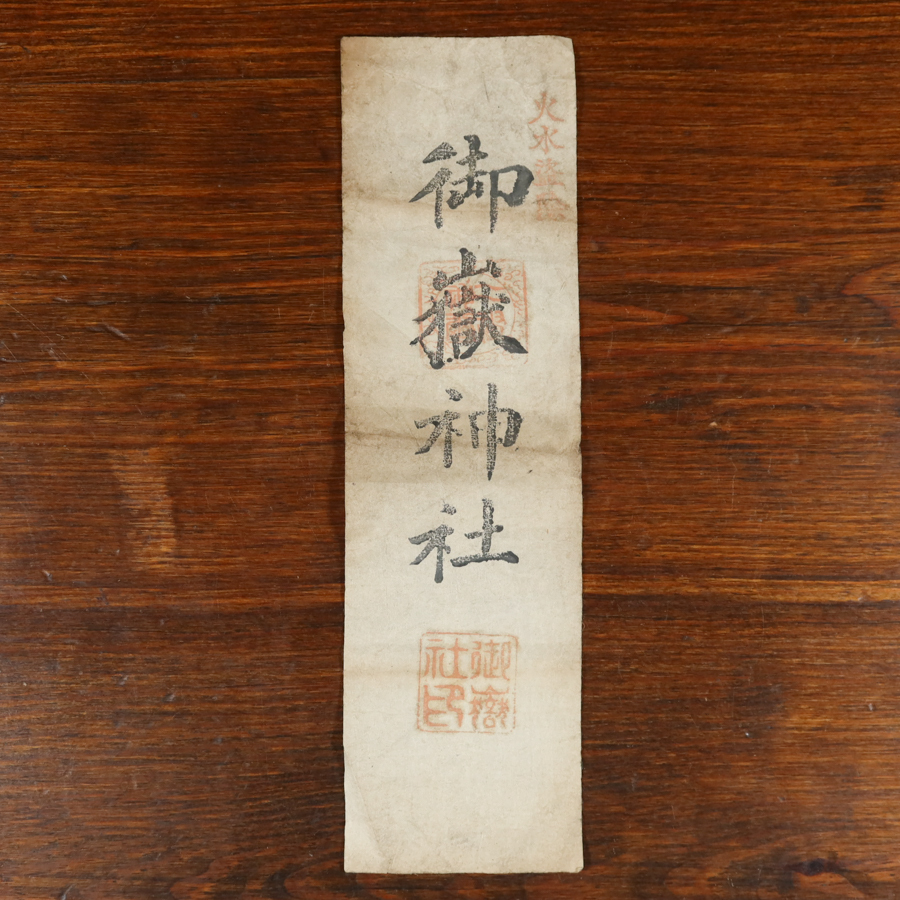 火水
御嶽神社
御嶽社印